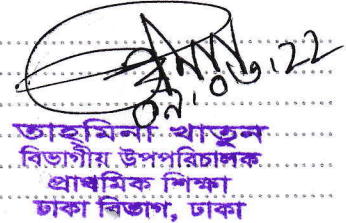 ০৭.০৬.22
তাহমিনা খাতুন
বিভাগীয় উপপরিচালক
প্রাথমিক শিক্ষা
ঢাকা বিভাগ, ঢাকা